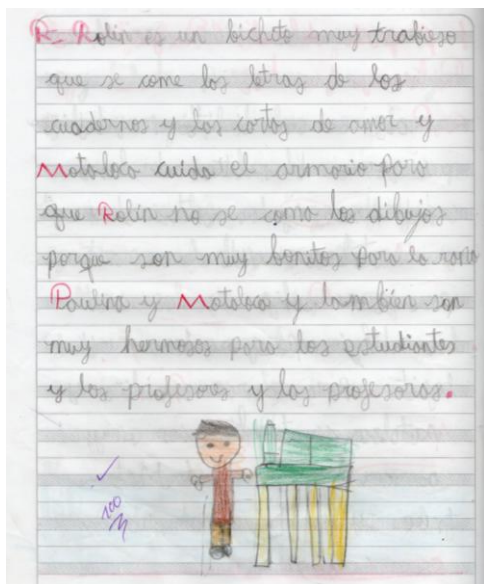 R= Rolín es un bichito muy trabieso
que se come las letras de los
cuadernos y las cartas de amor y
Mataloca cuida el armario para
que Rolín no se coma los dibujos
porque son muy bonitos para la rana
Paulina y Mataloca y también son
muy hermosos para los estudiantes
y los profesores y las profesoras.
100